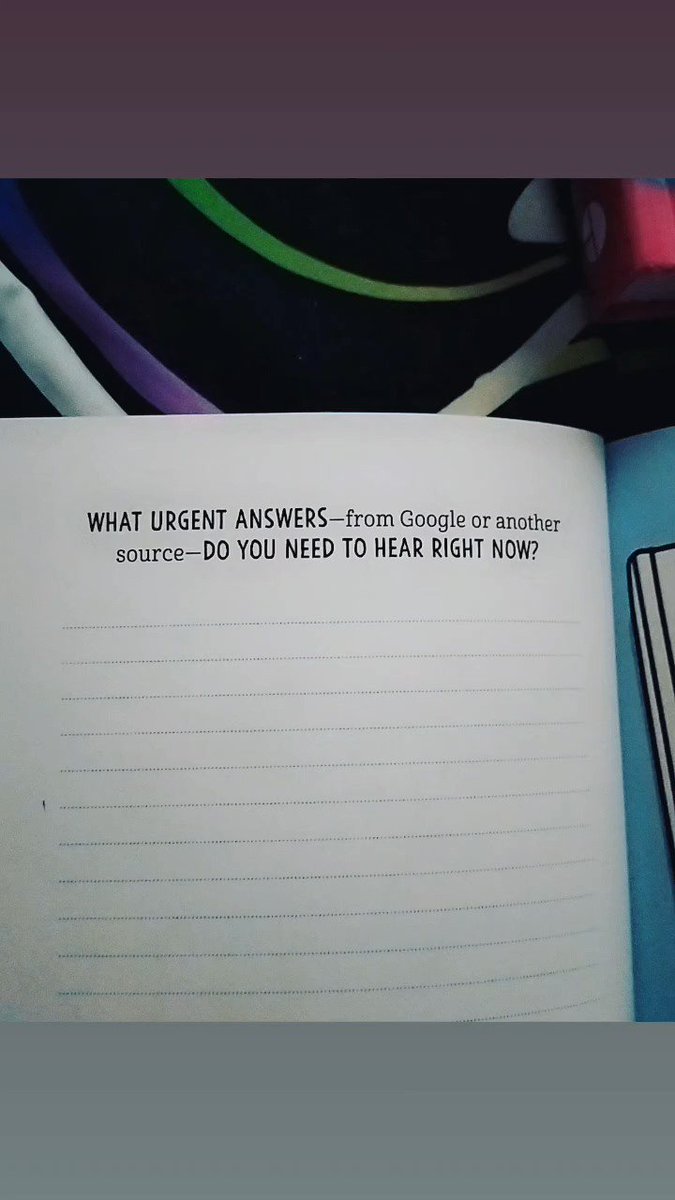 WHAT URGENT ANSWERS—from Google or another
source—DO YOU NEED TO HEAR RIGHT NOW?